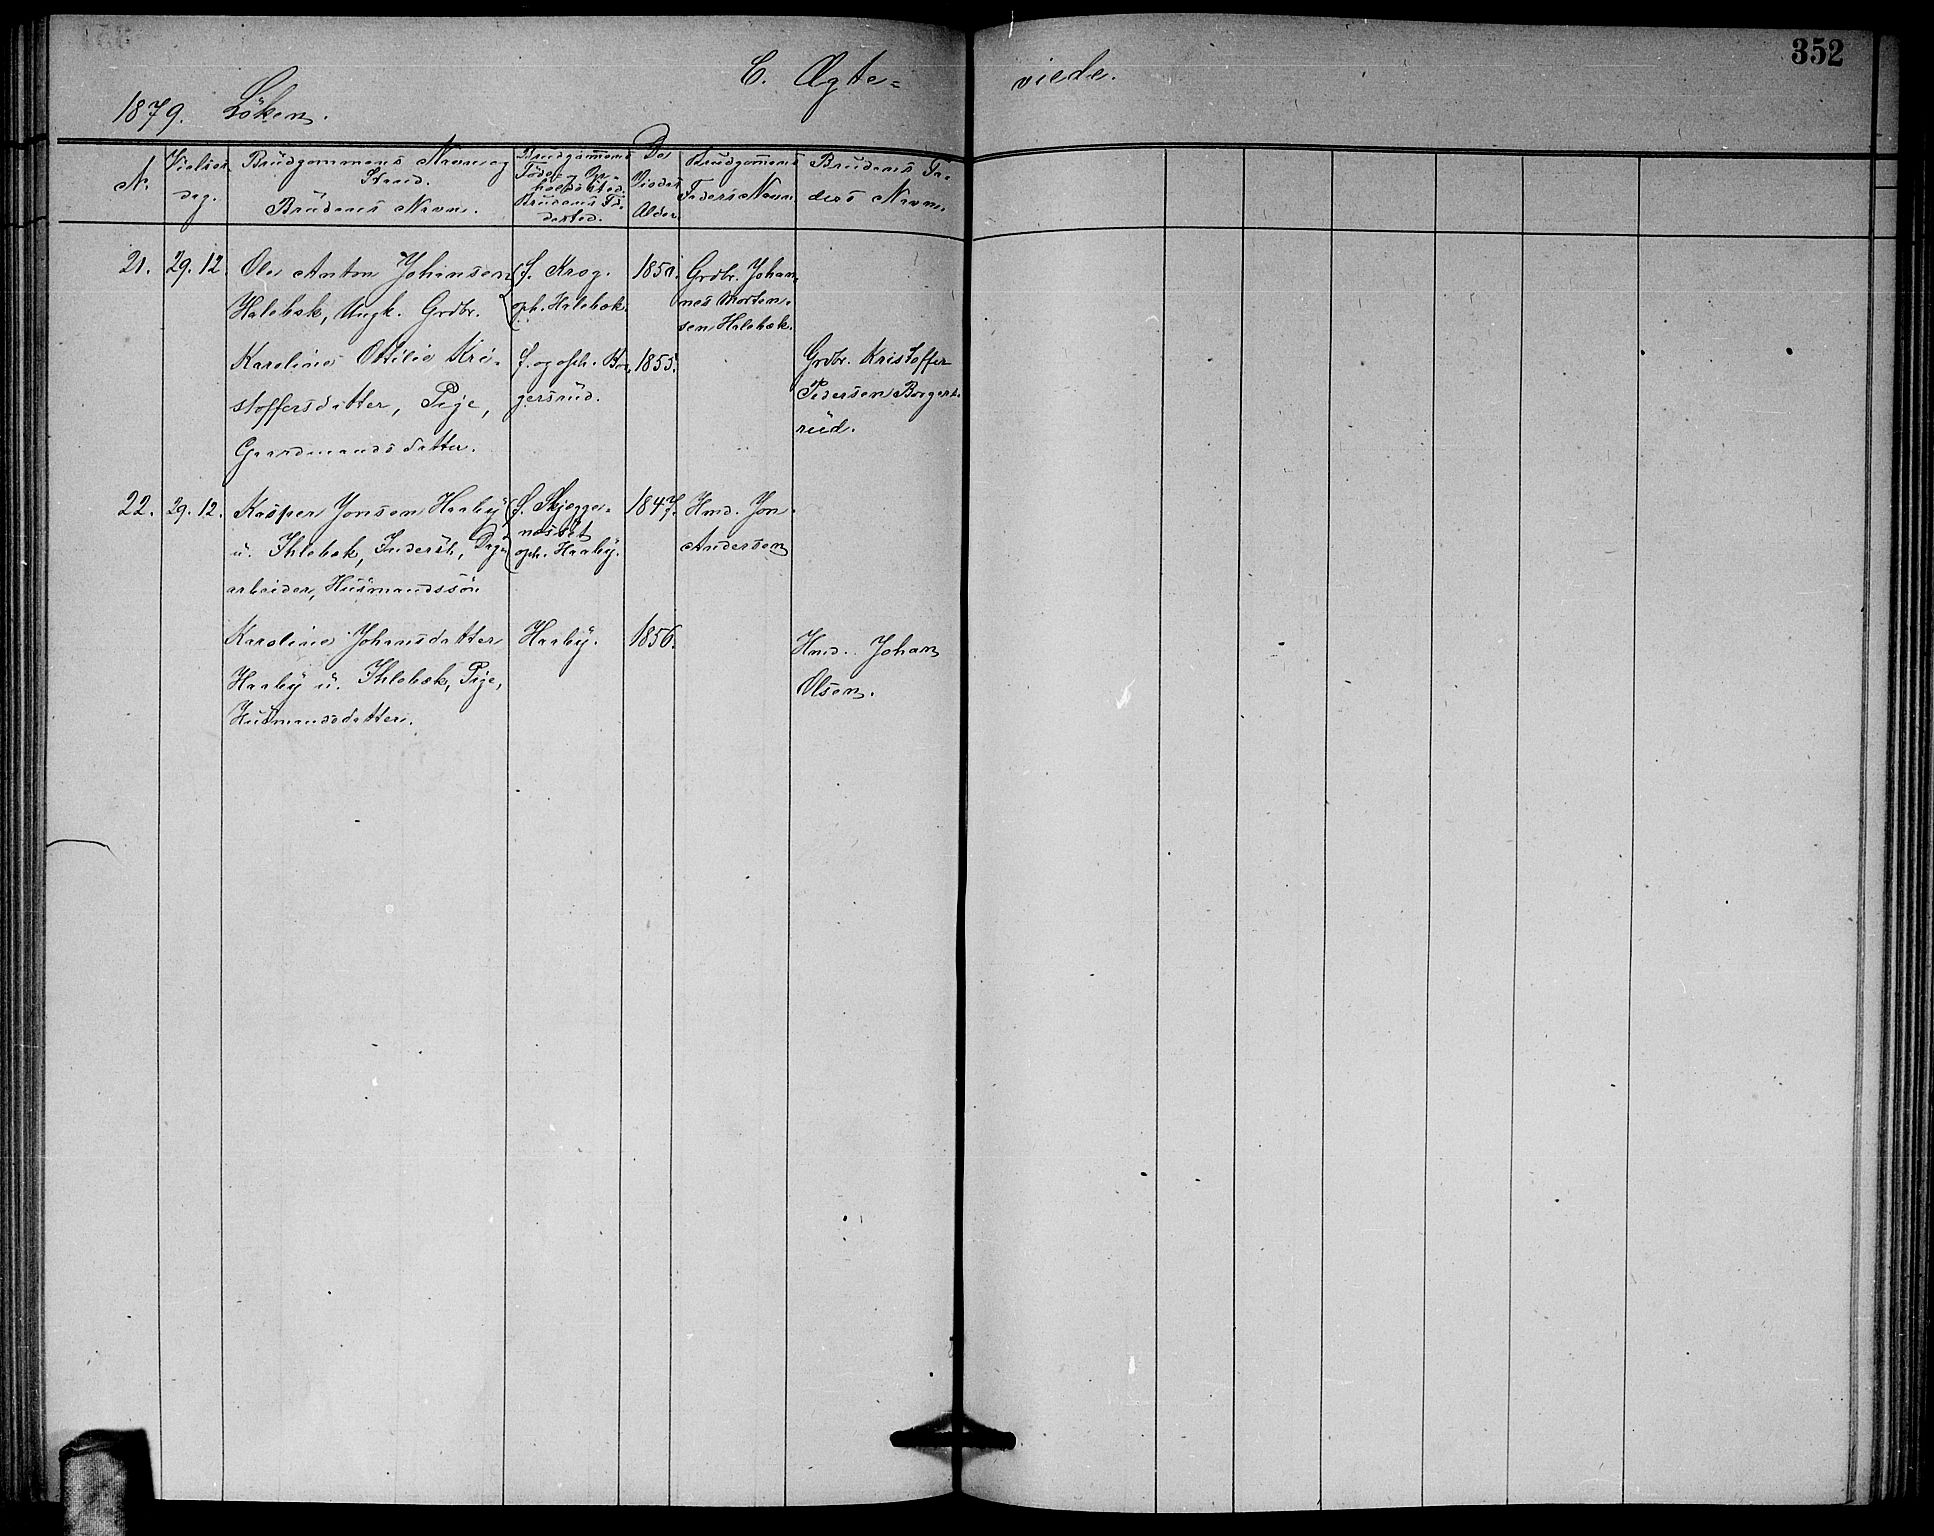 352
C. Ægte-
viede.
1879. Löken.
No.
Vielses-
dag.
Brüdgommens Navn og
Stand.
Brüdens Navn.
Brudgommens
Föde- og Op-
holdssted.
Brudens Fö-
dested.
De
Viedes
Alder.
Brüdgommens
Faders Navn.
Brüdens Fa-
ders Navn.
21. 29.12. Ole Anton Johansen
Halebæk, Ungk. Grdbr.
f. Krog.
oph. Halebæk.
1850.
Grdbr. Johan-
nes Morten-
sen Halebæk.
Karoline Otilie Kri-
stoffersdatter, Pige,
Gaardmandsdatter.
f. og oph. Bör-
gersrüd.
1855.
Grdbr. Kristoffer
Pedersen Börgers-
rüd.
22. 29.12. Kasper Jonsen Haaby
ü. Ihlebæk, Inderst, Dag-
arbeider, Hüsmandssön
f. Skjegge-
næsset
oph. Haaby.
1847.
Hmd. Jon
Andersen
Karoline Johansdatter
Haaby ü. Ihlebæk, Pige,
Hüsmandsdatter.
Haaby.
1856.
Hmd. Johan
Olsen.